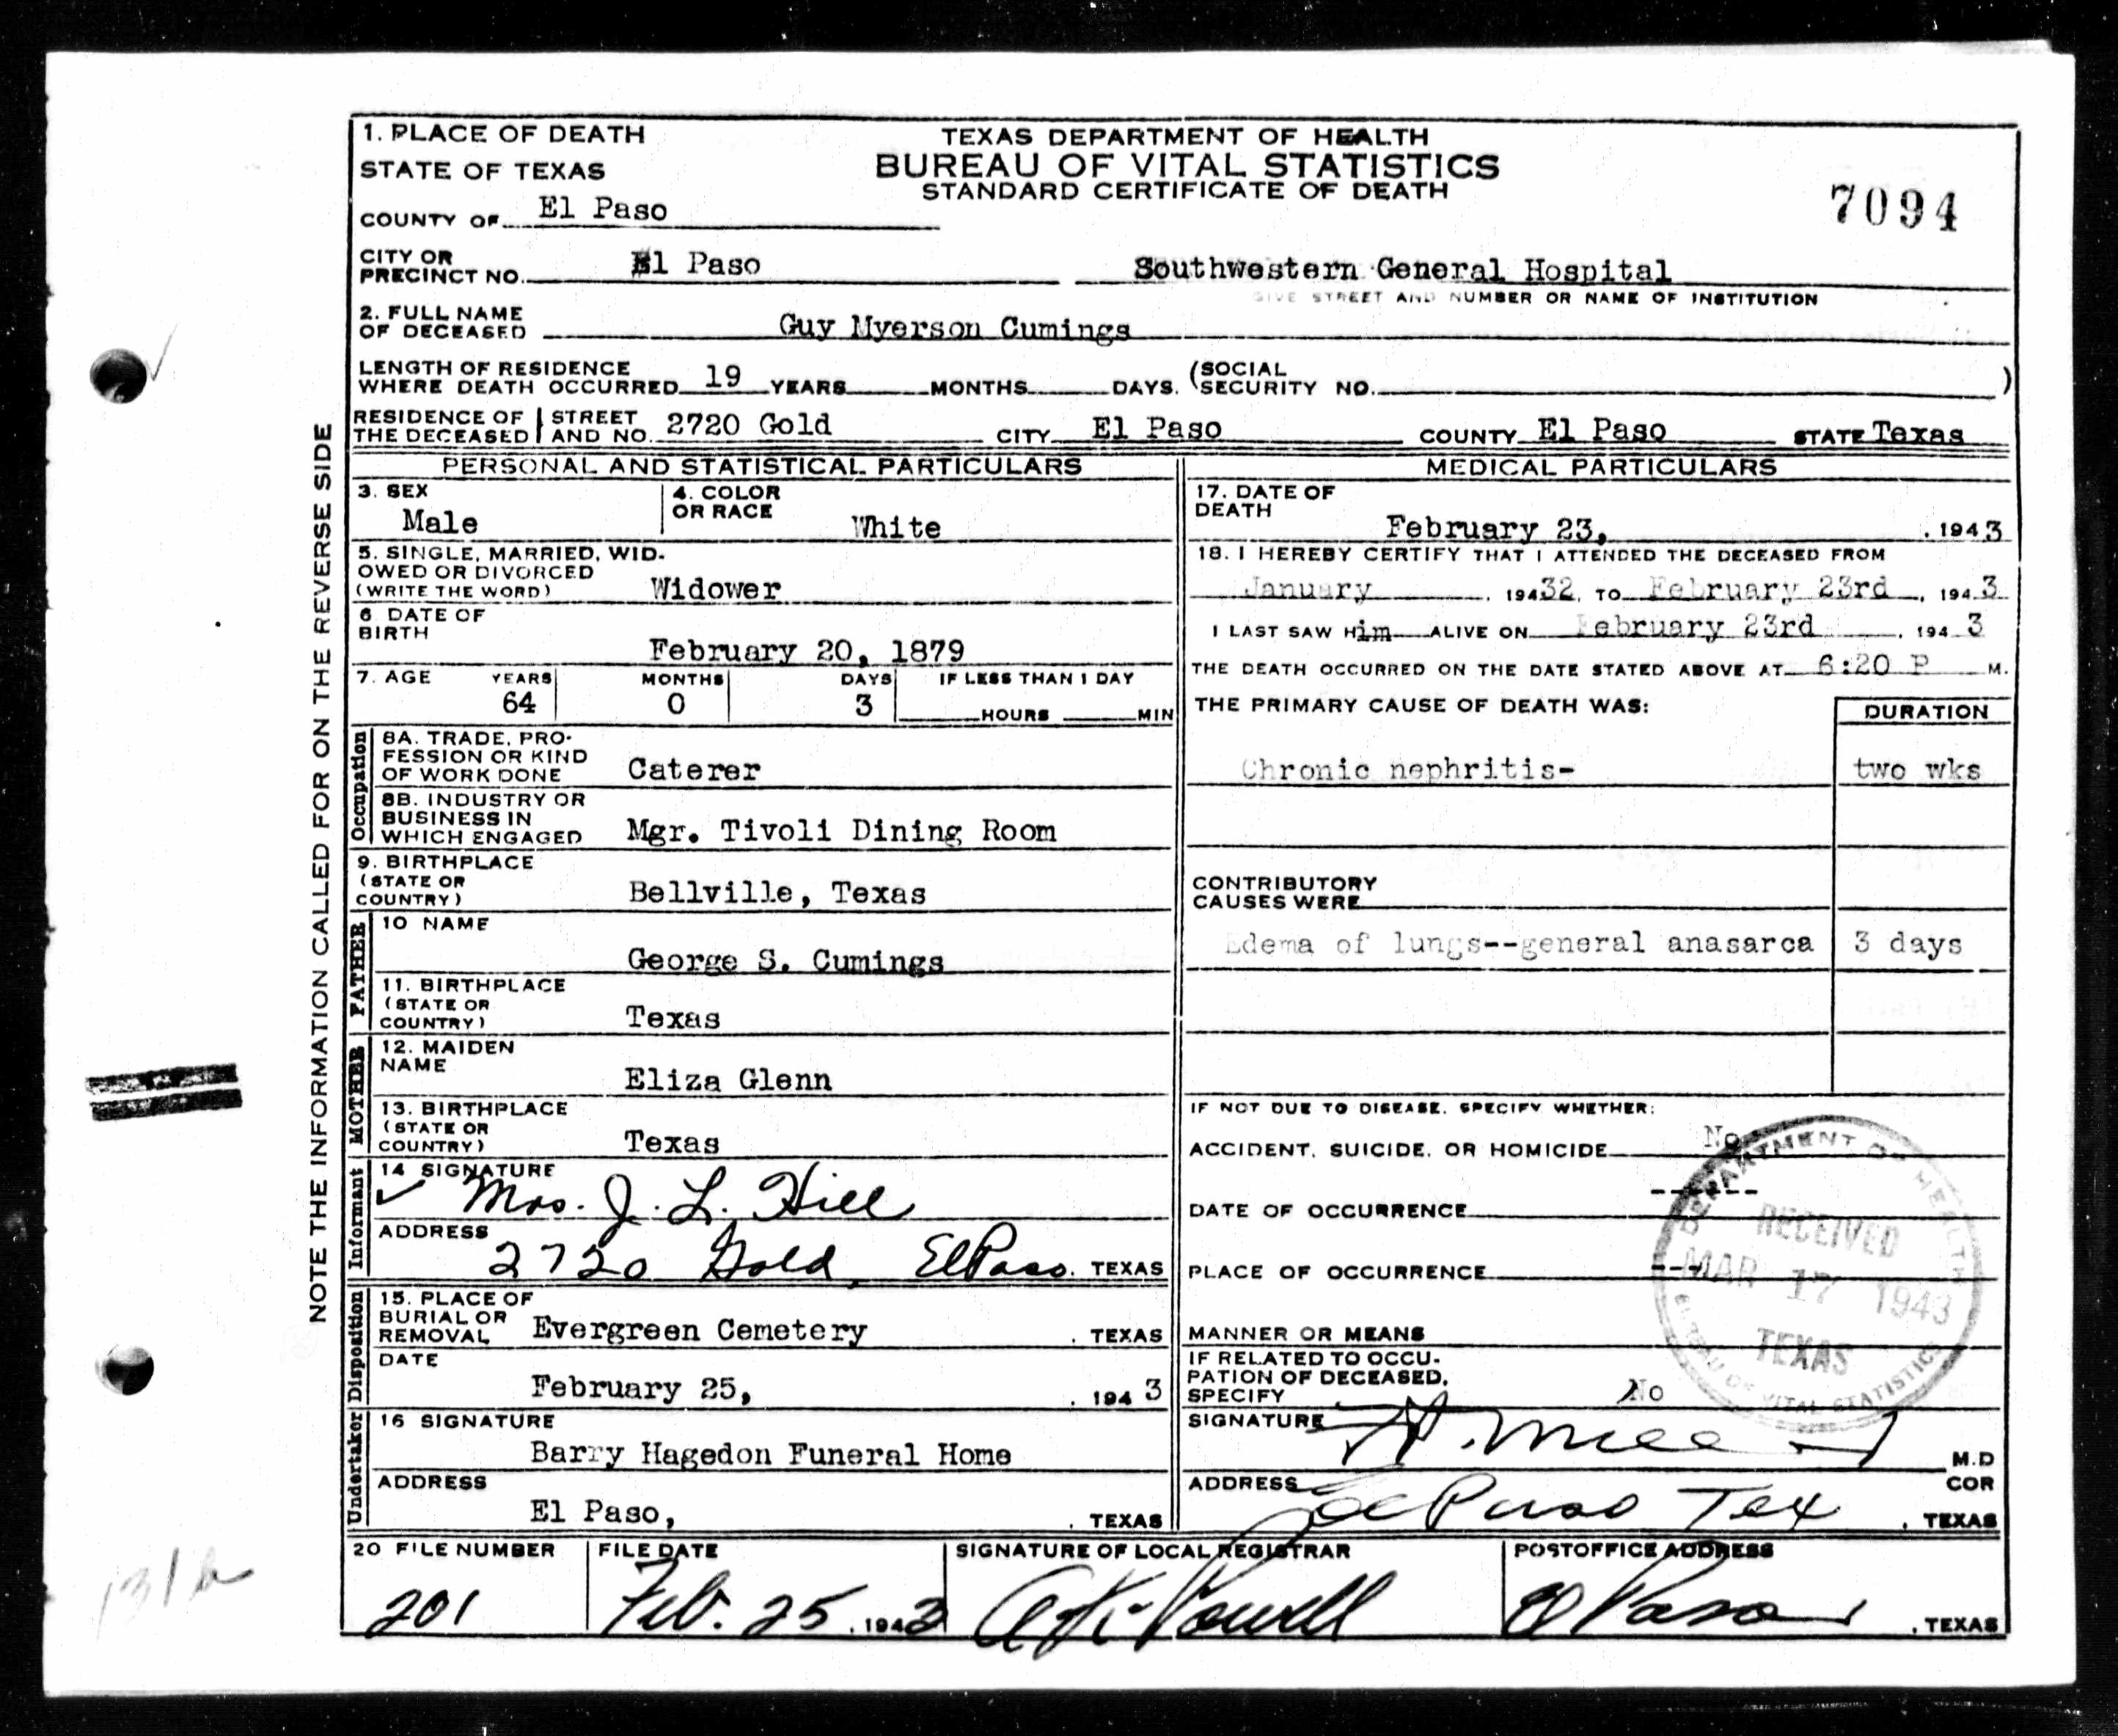 1. PLACE OF DEATH
STATE OF TEXAS
COUNTY OF El Paso
TEXAS DEPARTMENT OF HEALTH
BUREAU OF VITAL STATISTICS
STANDARD CERTIFICATE OF DEATH
7094
CITY OR
PRECINCT NO. El Paso Southwestern General Hospital
GIVE STREET AND NUMBER OR NAME OF INSTITUTION
2. FULL NAME
OF DECEASED Guy Myerson Cumings
LENGTH OF RESIDENCE
WHERE DEATH OCCURRED 19 YEARS MONTHS DAYS. (SOCIAL
SECURITY NO. )
RESIDENCE OF THE DECEASED STREET AND NO. 2720 Gold CITY El Paso COUNTY El Paso STATE Texas
NOTE THE INFORMATION CALLED FOR ON THE REVERSE SIDE
PERSONAL AND STATISTICAL PARTICULARS
3. SEX
Male
4. COLOR
OR RACE White
5. SINGLE, MARRIED, WID-
OWED OR DIVORCED
(WRITE THE WORD) Widower
6 DATE OF
BIRTH February 20, 1879
7. AGE YEARS MONTHS DAYS IF LESS THAN 1 DAY
64 0 3 HOURS MIN
Occupation
8A. TRADE, PRO-
FESSION OR KIND
OF WORK DONE Caterer
8B. INDUSTRY OR
BUSINESS IN
WHICH ENGAGED Mgr. Tivoli Dining Room
9. BIRTHPLACE
(STATE OR
COUNTRY) Bellville, Texas
FATHER
10 NAME
George S. Cumings
11. BIRTHPLACE
(STATE OR
COUNTRY) Texas
MOTHER
12. MAIDEN
NAME Eliza Glenn
13. BIRTHPLACE
(STATE OR
COUNTRY) Texas
Informant
14 SIGNATURE
✓ Mrs. J. L. Hill
ADDRESS
2720 Gold, El Paso. TEXAS
Disposition
15. PLACE OF
BURIAL OR
REMOVAL Evergreen Cemetery , TEXAS
DATE
February 25, , 1943
Undertaker
16 SIGNATURE
Barry Hagedon Funeral Home
ADDRESS
El Paso, , TEXAS
MEDICAL PARTICULARS
17. DATE OF
DEATH February 23, , 1943
18. I HEREBY CERTIFY THAT I ATTENDED THE DECEASED FROM
January , 19432, TO February 23rd , 1943
I LAST SAW Him ALIVE ON February 23rd , 1943
THE DEATH OCCURRED ON THE DATE STATED ABOVE AT 6:20 P M.
THE PRIMARY CAUSE OF DEATH WAS: DURATION
Chronic nephritis- two wks
CONTRIBUTORY
CAUSES WERE
Edema of lungs--general anasarca 3 days
IF NOT DUE TO DISEASE, SPECIFY WHETHER:
ACCIDENT, SUICIDE, OR HOMICIDE No
DATE OF OCCURRENCE ------
PLACE OF OCCURRENCE ---
MANNER OR MEANS
IF RELATED TO OCCU-
PATION OF DECEASED,
SPECIFY No
DEPARTMENT OF HEALTH
RECEIVED
MAR 17 1943
TEXAS
BUREAU OF VITAL STATISTICS
SIGNATURE
M.D
COR
ADDRESS El Paso Tex , TEXAS
20 FILE NUMBER
201
FILE DATE
Feb. 25, 1943
SIGNATURE OF LOCAL REGISTRAR
POSTOFFICE ADDRESS
El Paso , TEXAS